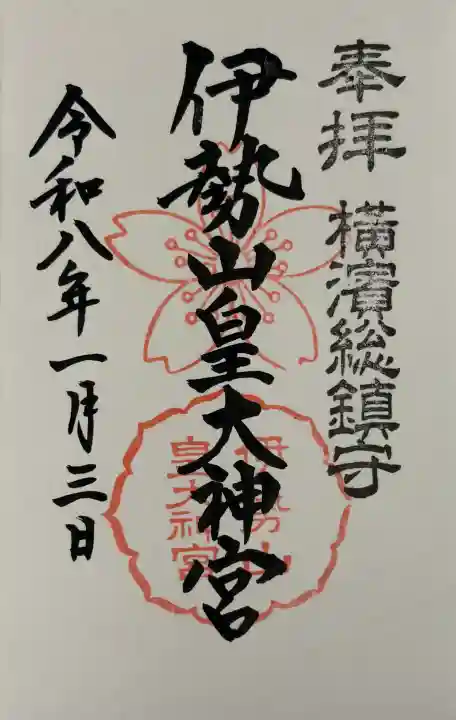 奉拝 橫濱総鎮守
伊勢山皇大神宮
伊勢山
皇大神宮
令和八年一月三日